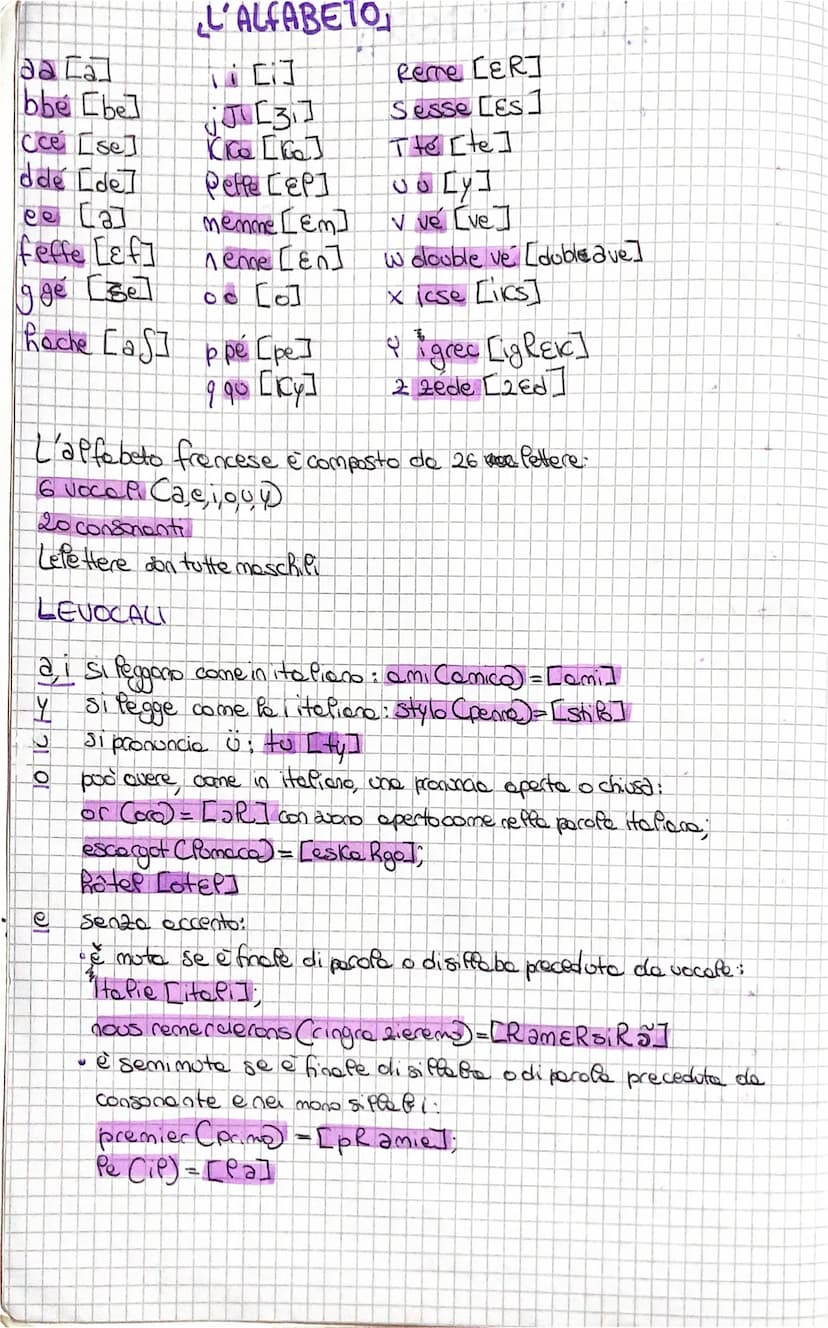 L'ALFABETO
a a [a]
b bé [be]
c cé [se]
d dé [de]
e e [ə]
f effe [ɛf]
g gé [ʒe]
h ache [aʃ]
i i [i]
j Ji [ʒi]
K Ka [Ka]
l elle [ɛl]
m emme [ɛm]
n enne [ɛn]
o o [o]
p pé [pe]
q qu [Ky]
R erre [ɛR]
S esse [ɛs]
T té [te]
u u [y]
v vé [ve]
w double vé [dubləve]
x icse [iKs]
y igrec [igRɛK]
z zéde [zɛd]
L'alfabeto francese è composto da 26 lettere:
6 vocali (a,e,i,o,u,y)
20 consonanti
Le lettere son tutte maschili
LE VOCALI
a,i si leggono come in italiano: ami (amico) = [ami]
y si legge come la i italiana: stylo (penna) = [stilo]
u si pronuncia ü: tu [ty]
o può avere, come in italiano, una pronuncia aperta o chiusa:
or (oro) = [ɔR] con suono aperto come nella parola italiana;
escargot (lumaca) = [eskaRgo];
hôtel [otɛl]
e senza accento:
• è muta se è finale di parola o di sillaba preceduta da vocale:
Italie [itali];
nous remercierons = [RəmɛRsiRɔ̃]
• è semimuta se è finale di sillaba o di parola preceduta da
consonante e nei monosillabi:
premier (primo) = [pRəmie];
le (il) = [lə]